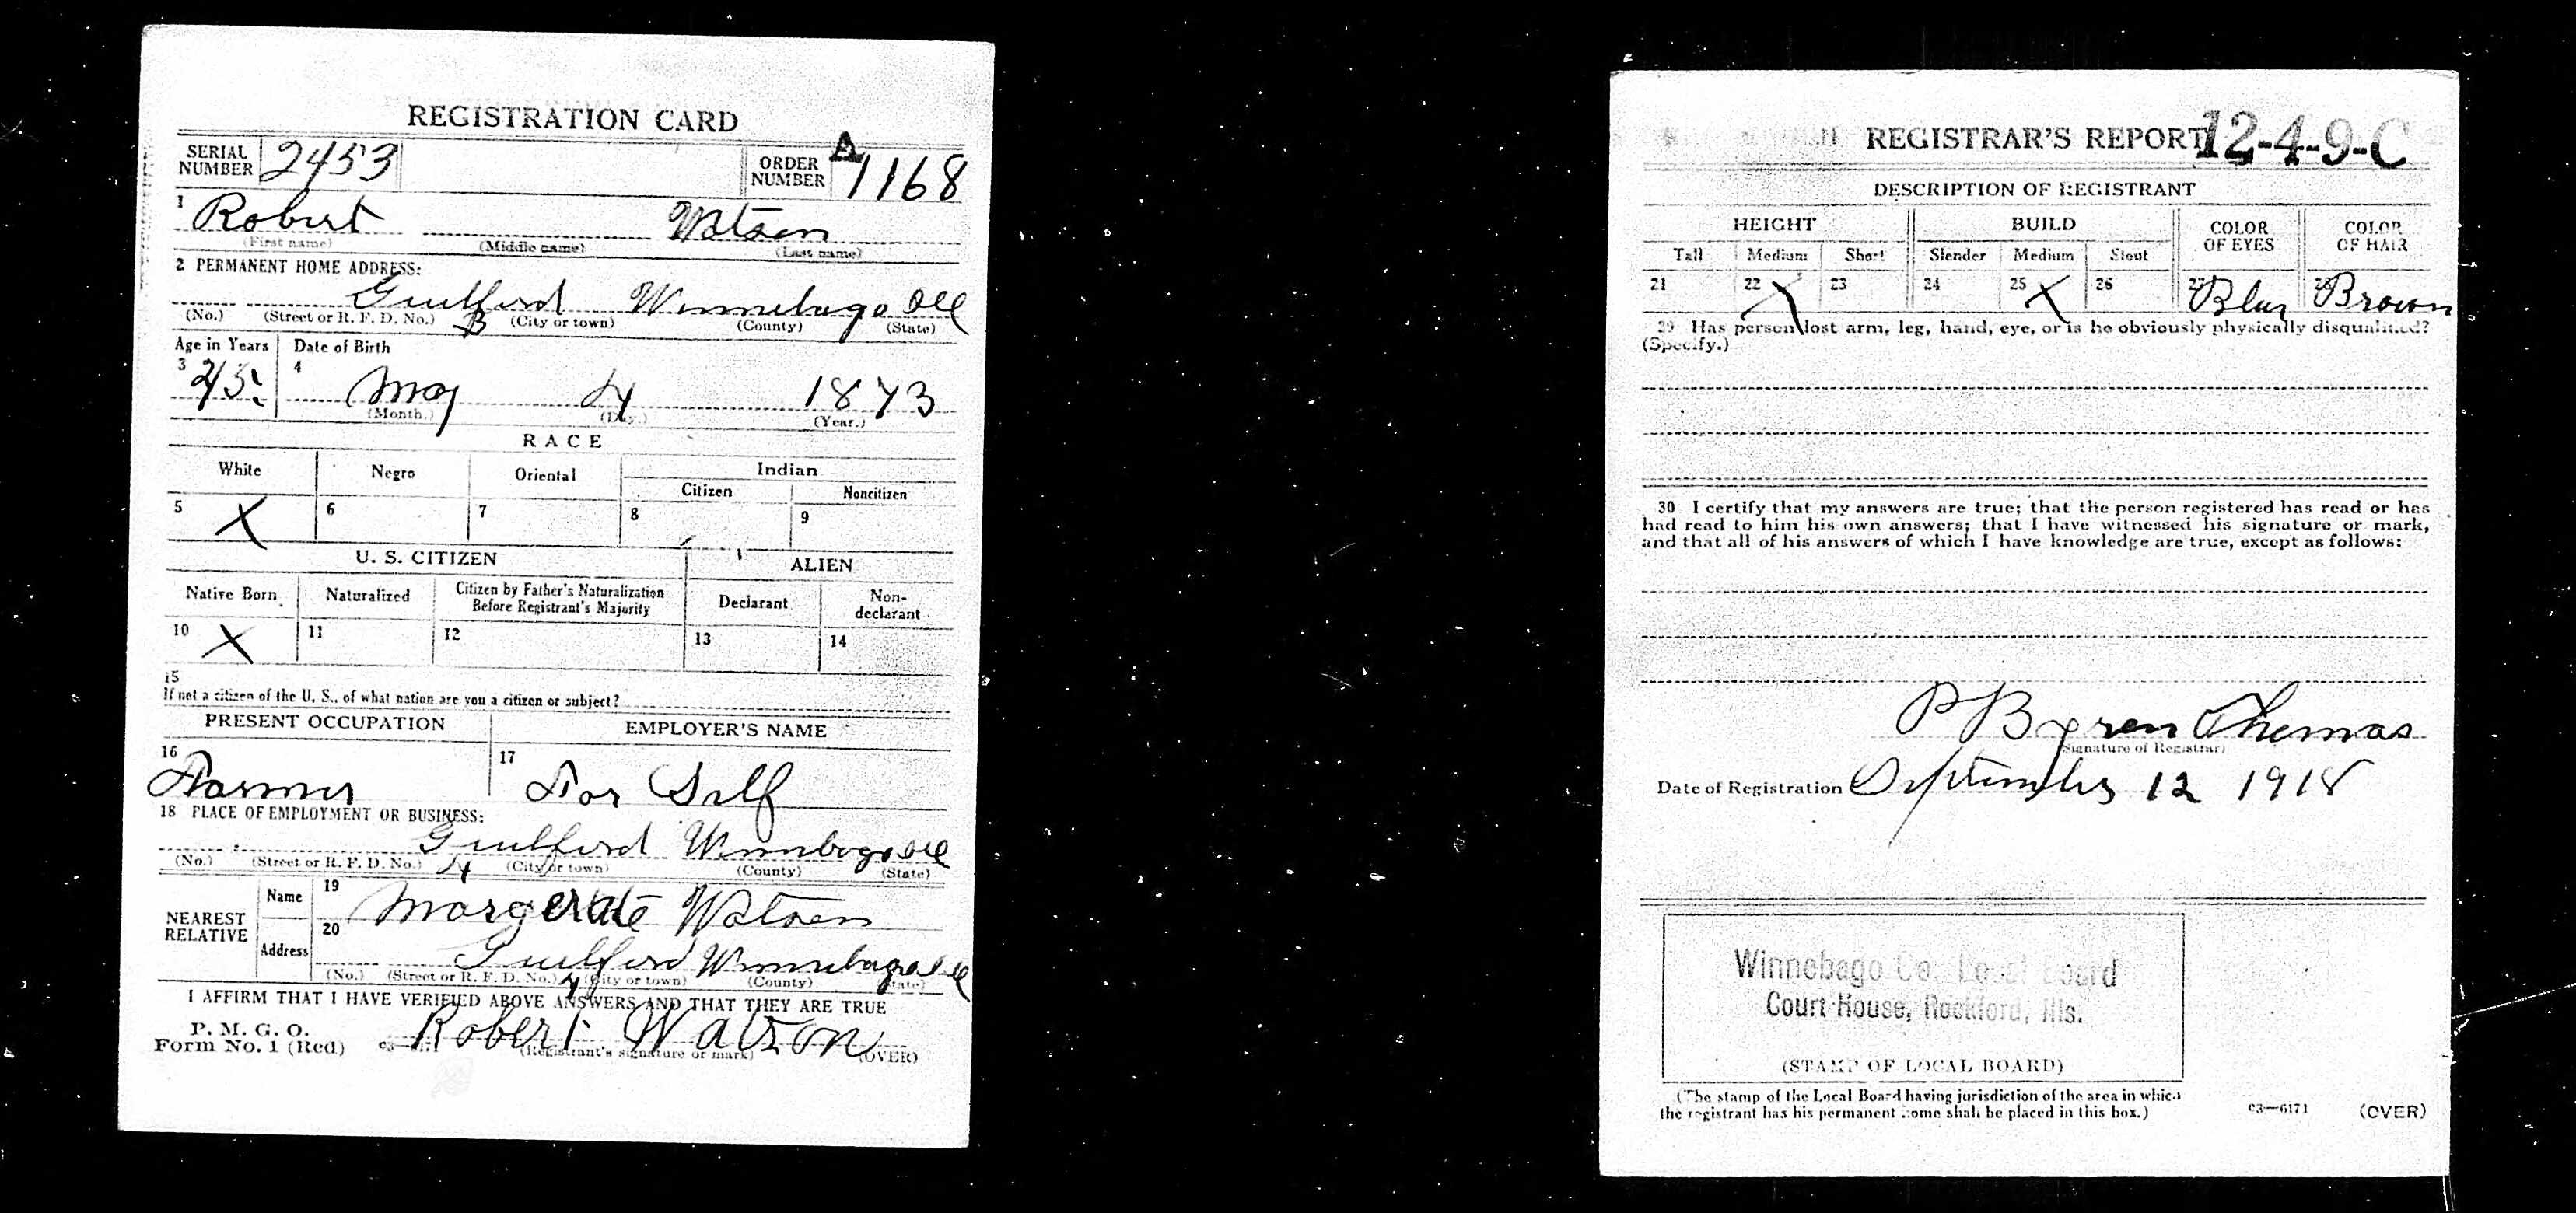 REGISTRATION CARD
SERIAL NUMBER 2453 ORDER NUMBER A 1168
1 Robert Watson
(First name) (Middle name) (Last name)
2 PERMANENT HOME ADDRESS:
Guilford Winnebago Ill
(No.) (Street or R. F. D. No.) (City or town) (County) (State)
Age in Years Date of Birth
3 45 4 May 4 1873
(Month.) (Day.) (Year.)
RACE
White Negro Oriental Indian
Citizen Noncitizen
5 X 6 7 8 9
U. S. CITIZEN ALIEN
Native Born Naturalized Citizen by Father's Naturalization Before Registrant's Majority Declarant Non-declarant
10 X 11 12 13 14
15
If not a citizen of the U. S., of what nation are you a citizen or subject?
PRESENT OCCUPATION EMPLOYER'S NAME
16 Farmer 17 For Self
18 PLACE OF EMPLOYMENT OR BUSINESS:
Guilford Winnebago Ill
(No.) (Street or R. F. D. No.) 4 (City or town) (County) (State)
NEAREST RELATIVE
Name 19 Watson
Address 20 Guilford Winnebago Ill
(No.) (Street or R. F. D. No.) 4 (City or town) (County) (State)
I AFFIRM THAT I HAVE VERIFIED ABOVE ANSWERS AND THAT THEY ARE TRUE
P. M. G. O.
Form No. 1 (Red) Robert Watson
(Registrant's signature or mark) (OVER)
REGISTRAR'S REPORT 12-4-9-C
DESCRIPTION OF REGISTRANT
HEIGHT BUILD COLOR OF EYES COLOR OF HAIR
Tall Medium Short Slender Medium Stout
21 22 X 23 24 25 X 26 27 Blue 28 Brown
29 Has person lost arm, leg, hand, eye, or is he obviously physically disqualified?
(Specify.)
30 I certify that my answers are true; that the person registered has read or has
had read to him his own answers; that I have witnessed his signature or mark,
and that all of his answers of which I have knowledge are true, except as follows:
P Byren Thomas
(Signature of Registrar)
Date of Registration September 12 1918
Winnebago Co. Local Board
Court House, Rockford, Ills.
(STAMP OF LOCAL BOARD)
(The stamp of the Local Board having jurisdiction of the area in which
the registrant has his permanent home shall be placed in this box.)
c3—6171 (OVER)